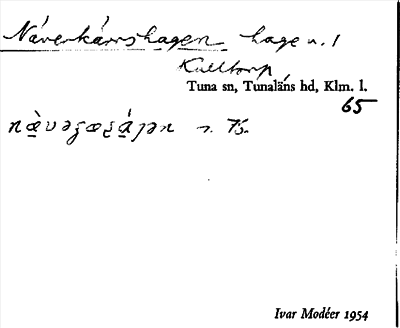 Näverkärrshagen hage n. 1
Kulltorp
Tuna sn, Tunaläns hd, Klm. l.
65
Ivar Modéer 1954